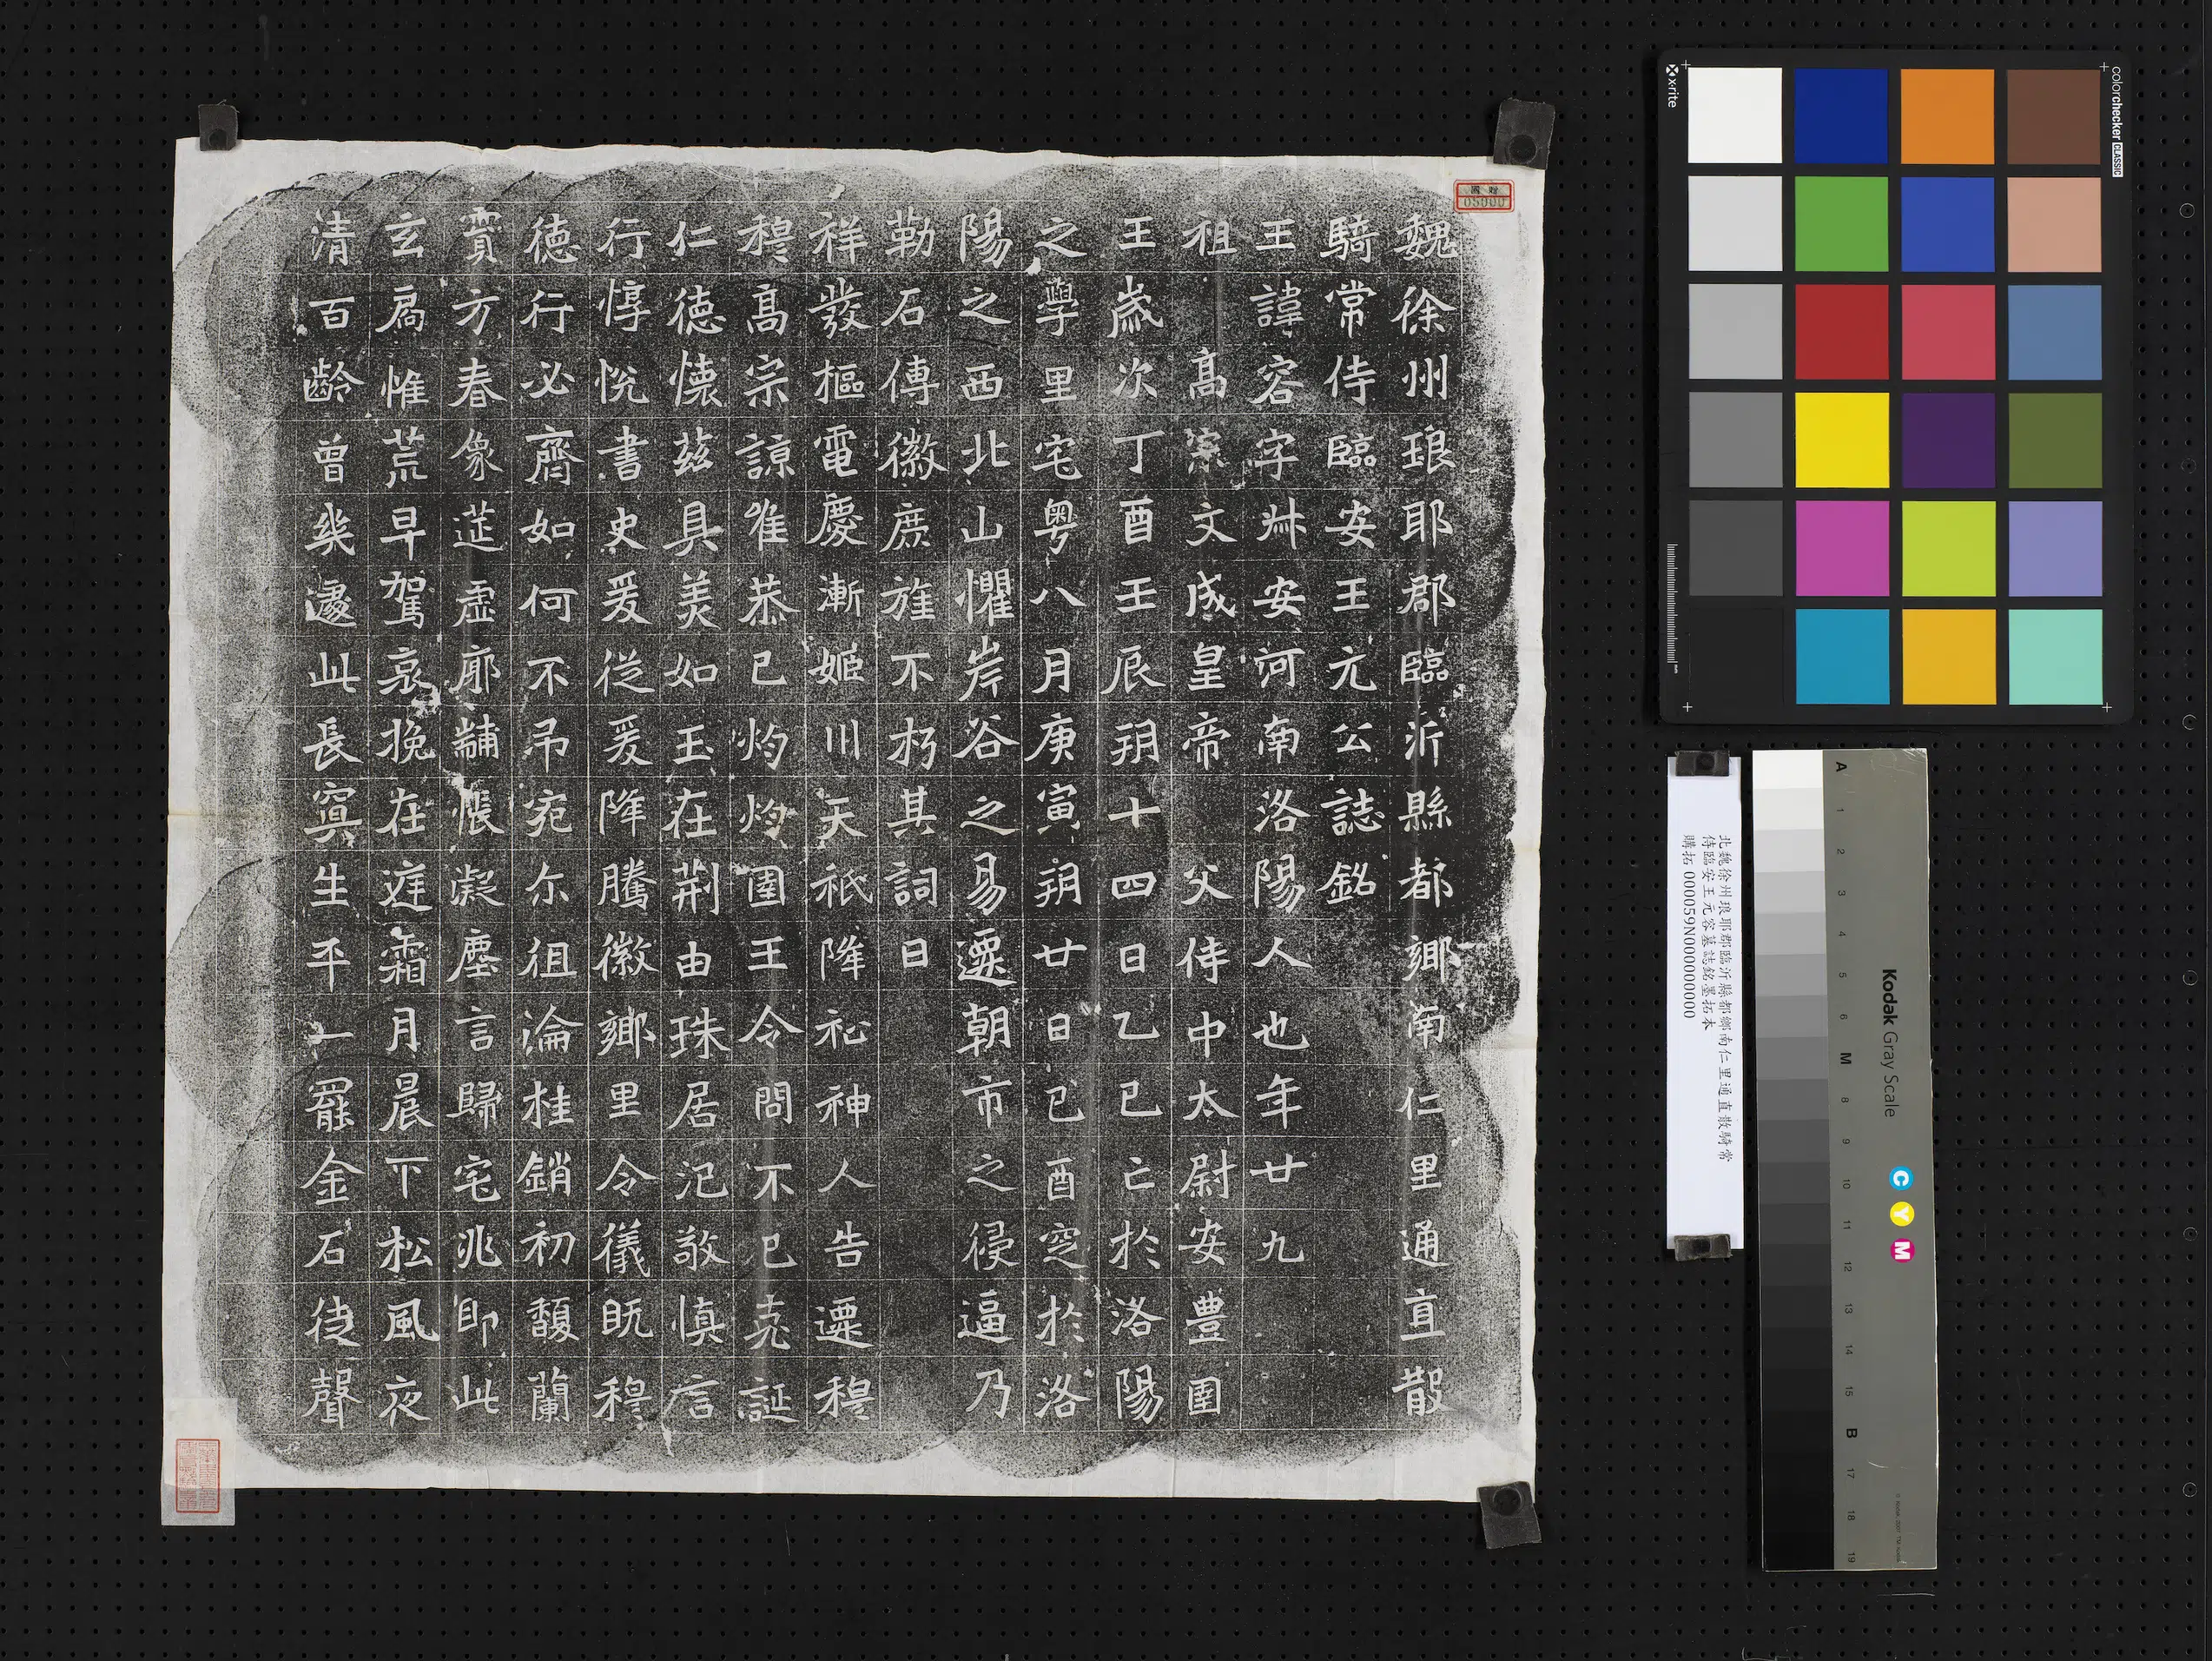 魏徐州琅耶郡臨沂縣都鄉南仁里通直散
騎常侍臨安王元公誌銘
王諱容字卌安河南洛陽人也年廿九
祖高宗文成皇帝父侍中太尉安豊圉
王歲次丁酉壬辰朔十四日乙巳亡於洛陽
之學里宅粵八月庚寅朔廿日己酉窆於洛
陽之西北山懼岸谷之易遷朝市之侵逼乃
勒石傳徽庶旌不朽其詞曰
祥發樞電慶漸姬川天祇降祉神人告遷穆
穆高宗諒唯恭己灼灼圉王令問不已克誕
仁德懷茲具美如玉在荊由珠居氾敬慎言
行惇悅書史爰從爰降騰徽鄉里令儀既穆
德行必齊如何不弔宛尔徂淪桂銷初馥蘭
實方春像筵虛廓黼帳凝塵言歸宅兆即此
玄扃惟荒早駕哀挽在庭霜月晨下松風夜
清百齡曾幾遽此長冥生平一罷金石徒聲
國贈
05000
x-rite
colorchecker CLASSIC
北魏徐州琅耶郡臨沂縣都鄉南仁里通直散騎常
侍臨安王元容墓誌銘墨拓本
購拓000059N000000000
A 1 2 3 4 5 6 M 8 9 10 11 12 13 14 15 B 17 18 19
Kodak Gray Scale
C Y M